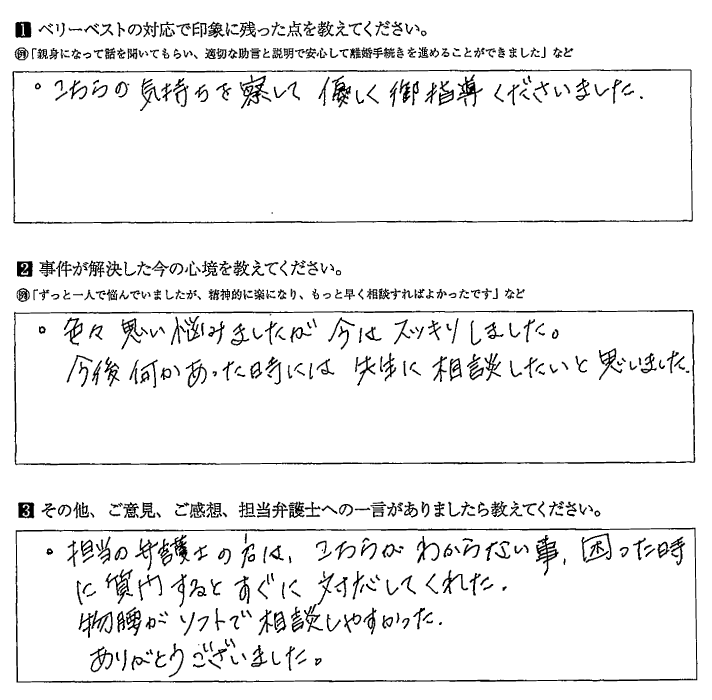 1 ベリーベストの対応で印象に残った点を教えてください。
例「親身になって話を聞いてもらい、適切な助言と説明で安心して離婚手続きを進めることができました」など
。こちらの気持ちを察して 優しく御指導くださいました.
2 事件が解決した今の心境を教えてください。
例「ずっと一人で悩んでいましたが、精神的に楽になり、もっと早く相談すればよかったです」など
。色々思い悩みましたが今はスッキリしました。
今後何かあった時には 先生に相談したいと思いました.
3 その他、ご意見、ご感想、担当弁護士への一言がありましたら教えてください。
。担当の弁護士の名は、こちらがわからない事、困った時
に質問するとすぐに対応してくれた.
物腰がソフトで相談しやすかった.
ありがとうございました。